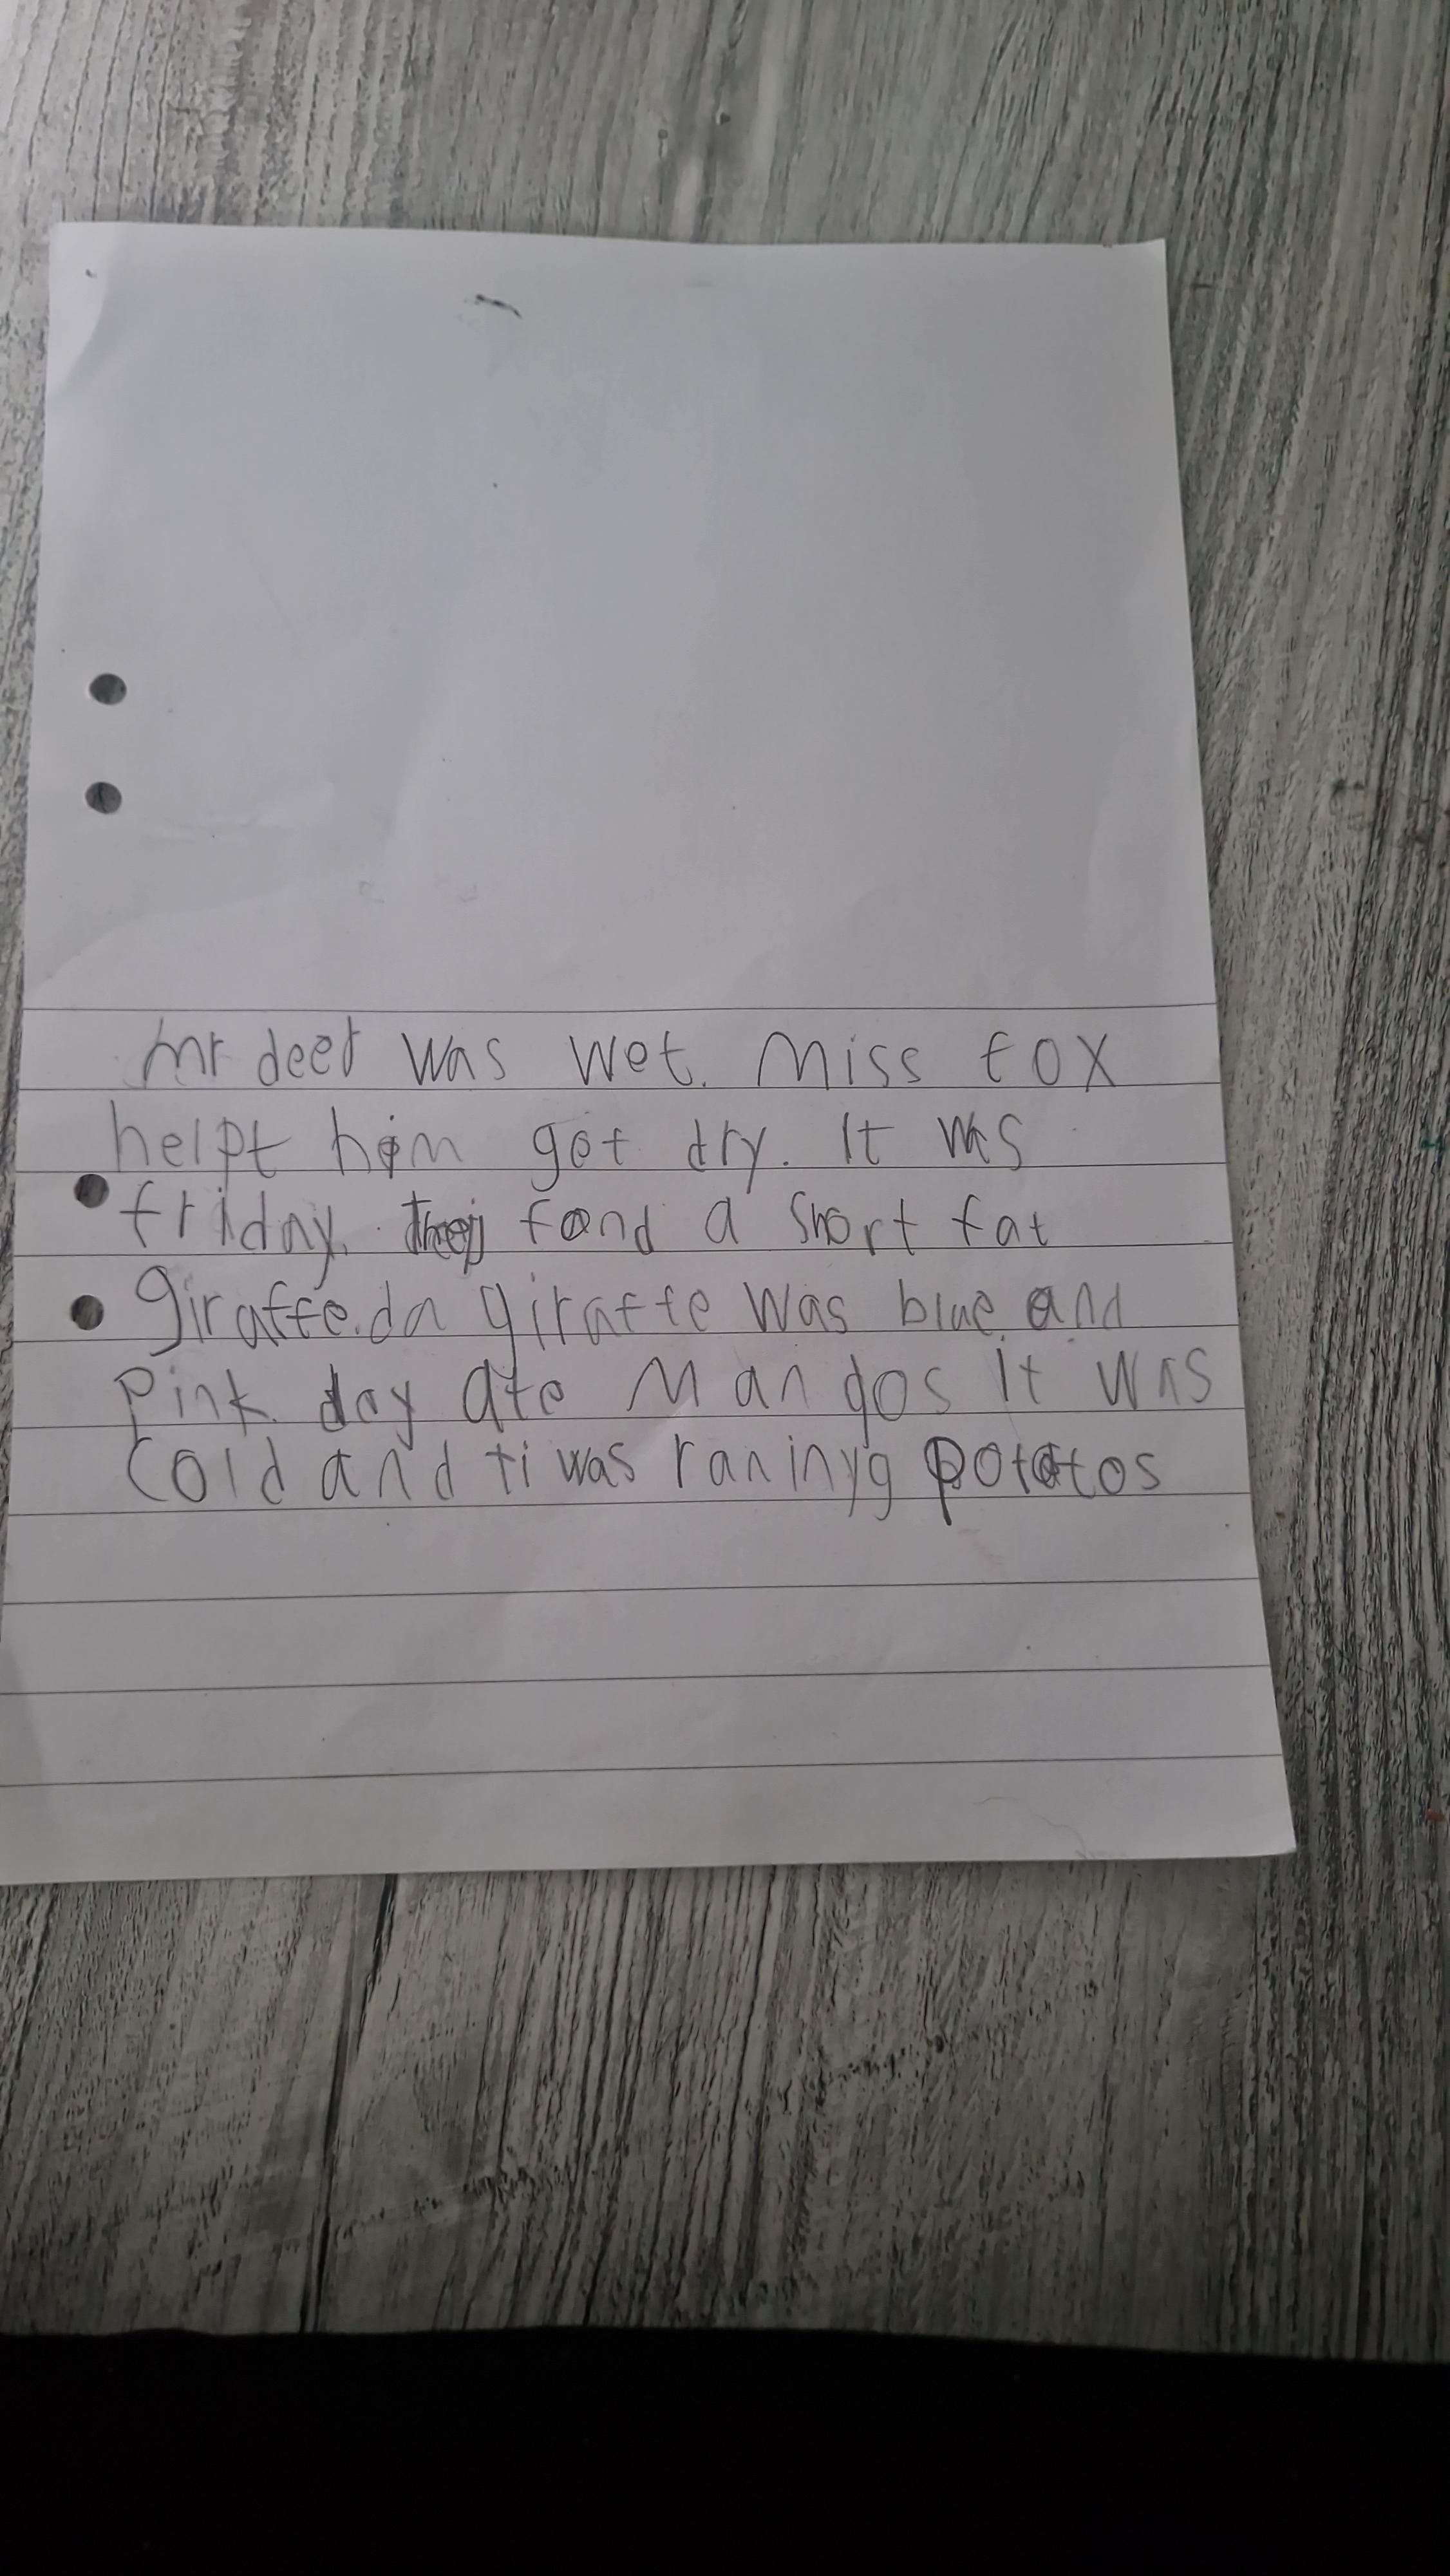 Mr deer was wet. Miss fox
helpt him get dry. It was
friday. They fond a short fat
giraffe. da giraffe was blue and
Pink. day ate Mangos it was
cold and ti was raninyg potatos